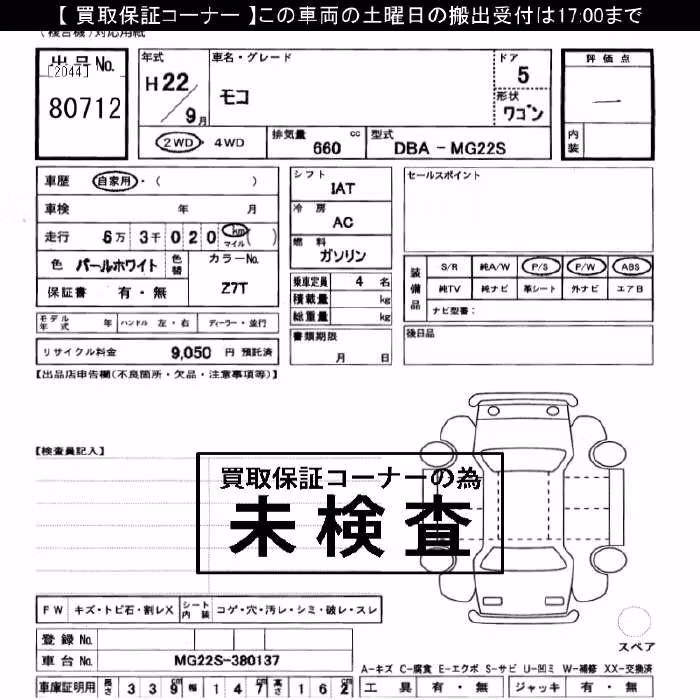 【 買取保証コーナー 】この車両の土曜日の搬出受付は17:00まで
(複合機)対応用紙
出品No.
[2044]
80712
年式
H22/9月
車名・グレード
モコ
ドア
5
形状
ワゴン
評価点
―
内装
2WD・4WD
排気量 cc
660
型式
DBA - MG22S
車歴 自家用・( )
車検 年 月
走行 6万 3千 0 2 0 km マイル ( )
色 パールホワイト 色替
カラーNo.
Z7T
保証書 有・無
シフト
IAT
冷房
AC
燃料
ガソリン
乗車定員 4 名
積載量 kg
総重量 kg
書類期限
月 日
セールスポイント
装備品
S/R 純A/W P/S P/W ABS
純TV 純ナビ 革シート 外ナビ エアB
ナビ型番:
後日品
モデル年式 年 ハンドル 左・右 ディーラー・並行
リサイクル料金 9,050 円 預託済
【出品店申告欄(不良箇所・欠品・注意事項等)】
【検査員記入】
買取保証コーナーの為
未検査
FW キズ・トビ石・割レX シート内装 コゲ・穴・汚レ・シミ・破レ・スレ
登録No.
車台No. MG22S-380137
車庫証明用 長さ 3 3 9 cm 幅 1 4 7 cm 高さ 1 6 2 cm
スペア
A-キズ C-腐食 E-エクボ S-サビ U-凹ミ W-補修 XX-交換済
工具 有・無 ジャッキ 有・無